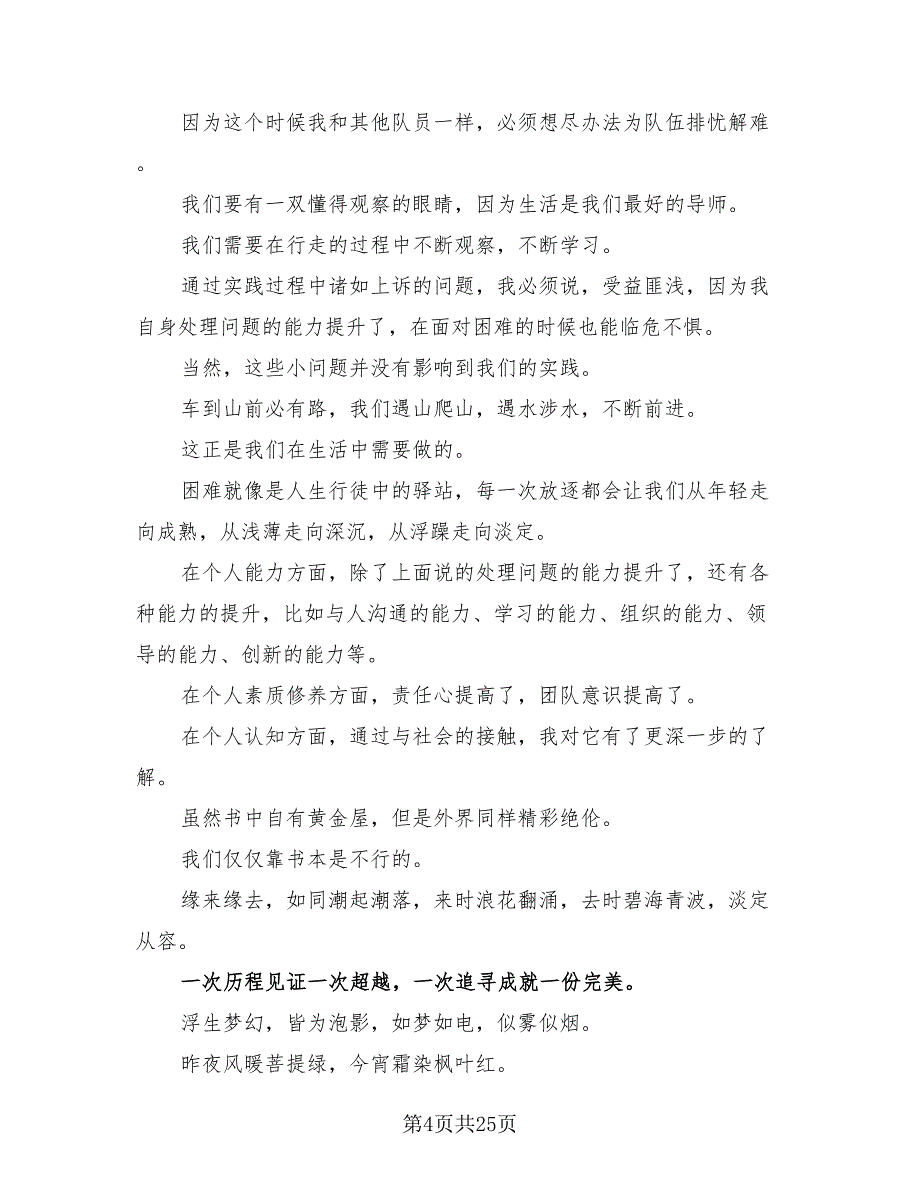 因为这个时候我和其他队员一样，必须想尽办法为队伍排忧解难
。
我们要有一双懂得观察的眼睛，因为生活是我们最好的导师。
我们需要在行走的过程中不断观察，不断学习。
通过实践过程中诸如上诉的问题，我必须说，受益匪浅，因为我
自身处理问题的能力提升了，在面对困难的时候也能临危不惧。
当然，这些小问题并没有影响到我们的实践。
车到山前必有路，我们遇山爬山，遇水涉水，不断前进。
这正是我们在生活中需要做的。
困难就像是人生行徒中的驿站，每一次放逐都会让我们从年轻走
向成熟，从浅薄走向深沉，从浮躁走向淡定。
在个人能力方面，除了上面说的处理问题的能力提升了，还有各
种能力的提升，比如与人沟通的能力、学习的能力、组织的能力、领
导的能力、创新的能力等。
在个人素质修养方面，责任心提高了，团队意识提高了。
在个人认知方面，通过与社会的接触，我对它有了更深一步的了
解。
虽然书中自有黄金屋，但是外界同样精彩绝伦。
我们仅仅靠书本是不行的。
缘来缘去，如同潮起潮落，来时浪花翻涌，去时碧海青波，淡定
从容。
一次历程见证一次超越，一次追寻成就一份完美。
浮生梦幻，皆为泡影，如梦如电，似雾似烟。
昨夜风暖菩提绿，今宵霜染枫叶红。
第4页共25页